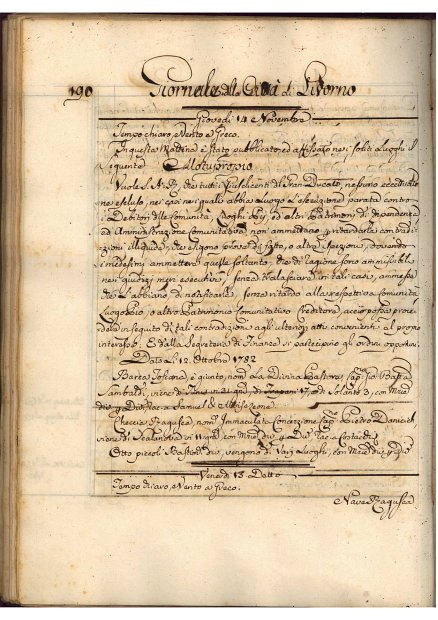 190 Giornale della Città di Livorno
Giovedì 14 Novembre
Tempo chiaro, e Vento a Greco.
In questa Mattina è stato pubblicato, ed affissato nei soliti Luoghi il
seguente Motuproprio
Vuole S. A. R. che tutti i Giusdicenti di Gran Ducato, nessuno eccettuato
ne escluso, nei casi nei quali abbia luogo l'esecuzione parata contro
i Debitori delle Comunità, Luoghi Pij, ed altri Patrimonj di dependenza
ed Amministrazione Comunitativa, non ammettano per ritardarla contradi-
zioni illiquide, che esigono prove di fatto, o altra Ispezione, dovendo
i medesimi ammettere quelle soltanto, che di ragione sono ammissibili
nei giudizj meri esecutivi, senza tralasciare in tali casi, ammesse
che l'abbiano di notificarle, senza ritardo alla respettiva Comunità
Luogo Pio, o altro Patrimonio Comunitativo Creditore, acciò possa proce-
dere in seguito di tali contradizioni agli ulteriori atti convenienti al proprio
interesse. E dalla Segreteria di Finanze si partecipino gli ordini opportuni.
Data lì 12. Ottobre 1782
Barca Toscana, è giunto, nom.ª La Divina Pastora, Cap.º Gio. Batta
viene di in 21 giorni, di Trapani 17, e di Solanto 8, con Merci
div.e e Dirette a Samuel
Checcia Ragusea nom.ª Immacolata Concezione Cap.º Pietro
viene di Scalanova in giorni con Merci div.e
Otto piccoli Bastim.ti div.i, vengono di Varj Luoghi, con Merci div.e
Venerdì 15 Detto
Tempo chiaro, e Vento a Greco.
Nave Ragusea